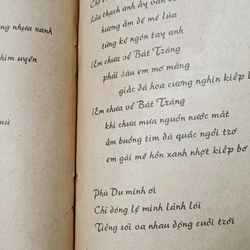 ng nhựa xanh
him uyên
mù
Lửa thạch anh ấy vẫn
hương ấm dễ mê lúa
từng kẽ ngón tay anh
(Em chưa về Bát Tràng
phải dấu em mơ màng
giấc dạ hoa cương nghìn kiếp l
(Em chưa về Bát Tràng
khi chưa mưa nguồn nước mắt
âm buồng tim đã quạc ngôi trơ
em gái mê hồn xanh nhợt kiếp bơ
Phù Du mình ơi
Chỉ dòng lệ mình lánh lói
Tiếng sói va nhau động cuối trời